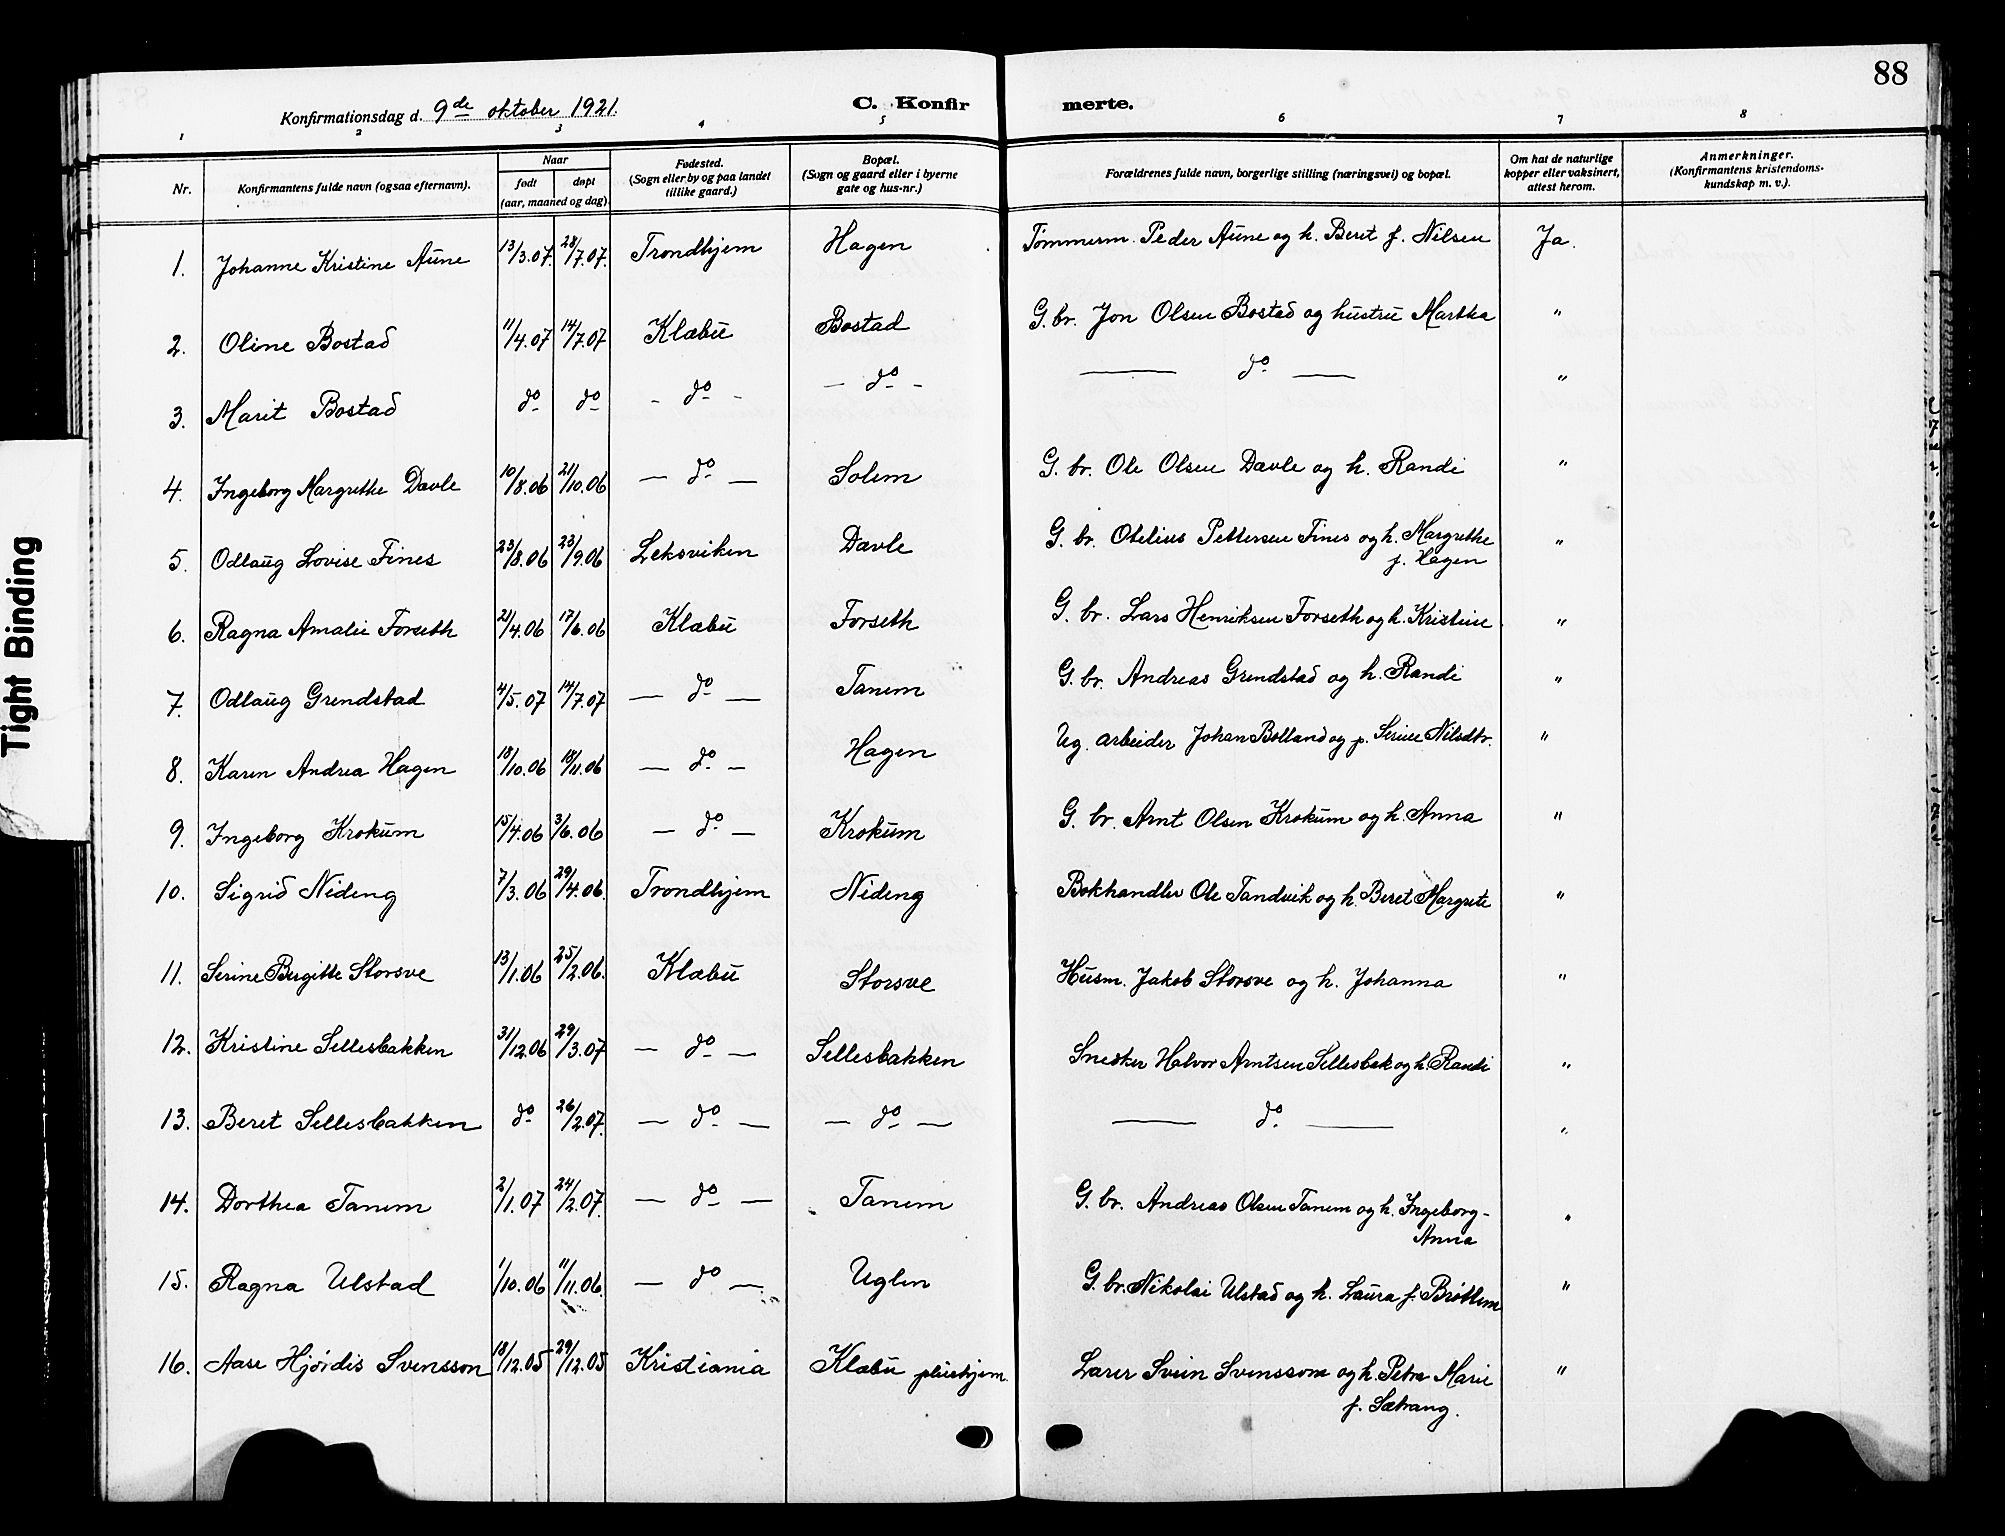 88
Konfirmationsdag d. 9de oktober 1921.
C. Konfirmerte.
1 2 3 4 5 6 7 8
Nr. | Konfirmantens fulde navn (ogsaa efternavn). | Naar født | døpt (aar, maaned og dag) | Fødested. (Sogn eller by og paa landet tillike gaard.) | Bopæl. (Sogn og gaard eller i byerne gate og hus-nr.) | Forældrenes fulde navn, borgerlige stilling (næringsvei) og bopæl. | Om hat de naturlige kopper eller vaksinert, attest herom. | Anmerkninger. (Konfirmantens kristendomskundskap m. v.).
1. Johanne Kristine Aune 13/3.07. 28/7.07. Trondhjem Hagen Tømmerm. Peder Aune og h. Beret f. Nilsen Ja.
2. Oline Bostad 11/4.07 14/7.07 Klæbu Bostad G. br. Jon Olsen Bostad og hustru Martha "
3. Marit Bostad do do - do - - do - — do — "
4. Ingeborg Margrethe Dævle 10/8.06 21/10.06 — do — Solem G. br. Ole Olsen Dævle og h. Randi "
5. Odlaug Lovise Fines 23/8.06 23/9.06 Leksviken Dævle G. br. Otelius Pettersen Fines og h. Margrethe "
f. Hagen
6. Ragna Amalie Forseth 21/4.06 17/6.06 Klæbu Forseth G. br. Lars Henriksen Forseth og h. Kristine "
7. Odlaug Grendstad 4/5.07 14/7.07 — do — Tanem G. br. Andreas Grendstad og h. Randi "
8. Karen Andrea Hagen 18/10.06 18/11.06 — do — Hagen Ug. arbeider Johan Bolland og p. Serine Nilsdtr. "
9. Ingeborg Krokum 15/4.06 3/6.06 — do — Krokum G. br. Arnt Olsen Krokum og h. Anna "
10. Sigrid Nideng 7/3.06 29/4.06. Trondhjem Nideng Bokhandler Ole Tandvik og h. Beret Margrete "
11. Serine Bergitte Storsve 13/1.06 25/2.06. Klæbu Storsve Husm. Jakob Storsve og h. Johanna "
12. Kristine Sellesbakken 31/12.06 29/3.07 — do — Sellesbakken Snedker Halvor Arntsen Sellesbak og h. Randi "
13. Beret Sellesbakken do 26/2.07. — do — — do — — do — "
14. Dorthea Tanem 2/1.07 24/2.07. — do — Tanem G. br. Andreas Olsen Tanem og h. Ingeborg- "
Anna
15. Ragna Ulstad 1/10.06 11/11.06. — do — Uglen G. br. Nikolai Ulstad og h. Laura f. Brøttem "
16. Aase Hjørdis Svensson 18/12.05 29/12.05 Kristiania Klæbu pleiehjem. Lærer Svein Svenssom og h. Petra Marie "
f. Sætrang.
Tight Binding